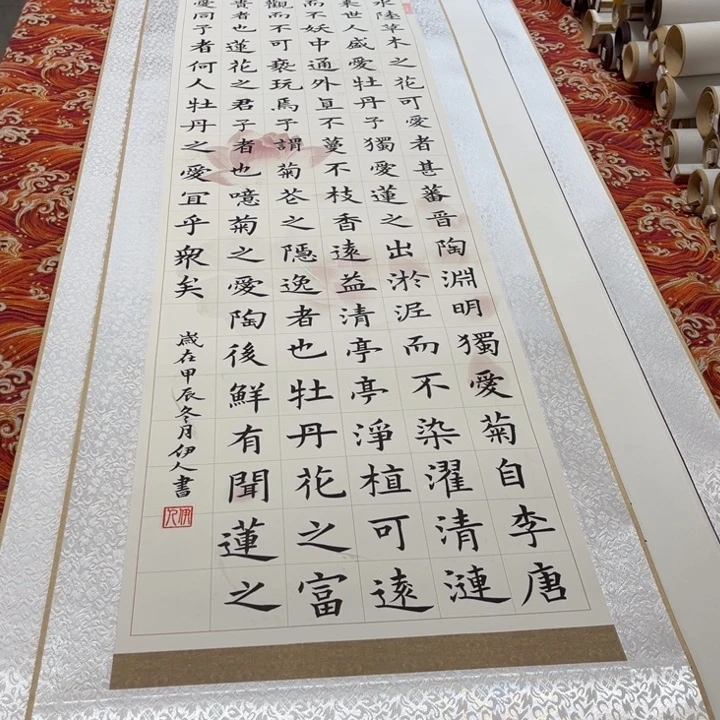 水陸草木之花可愛者甚蕃晉陶淵明獨愛菊自李唐
來世人盛愛牡丹予獨愛蓮之出淤泥而不染濯清漣
而不妖中通外直不蔓不枝香遠益清亭亭淨植可遠
觀而不可褻玩焉予謂菊花之隱逸者也牡丹花之富
貴者也蓮花之君子者也噫菊之愛陶後鮮有聞蓮之
愛同予者何人牡丹之愛宜乎衆矣
歲在甲辰冬月伊人書
伊人